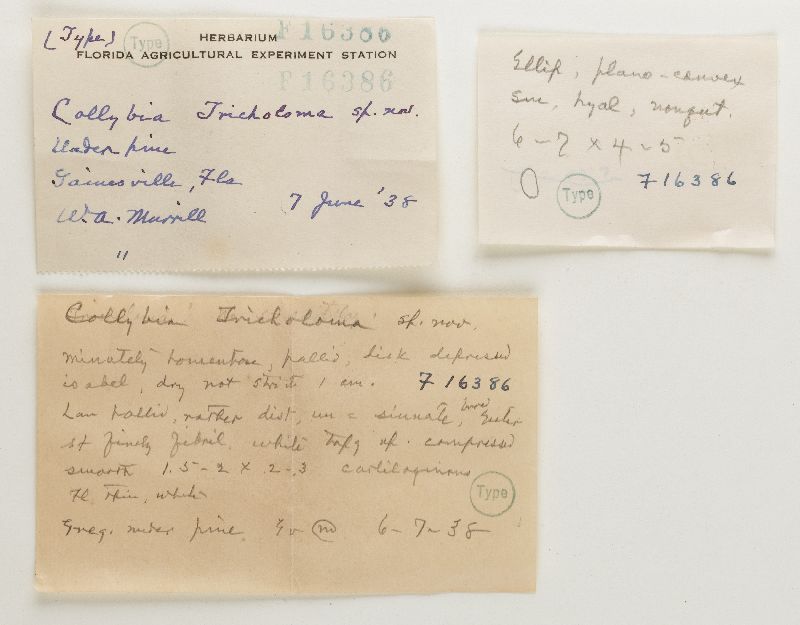 (Type) Type HERBARIUM F16386
FLORIDA AGRICULTURAL EXPERIMENT STATION
F16386
Collybia Tricholoma sp. nov.
Under pine
Gainesville, Fla
W.A. Murrill 7 June '38
"
Ellip; plano-convex
sm, hyal, nongut.
6-7 x 4-5
Type F16386
Collybia Tricholoma sp. nov.
minutely tomentose, pallid, disk depressed
isabel, dry not striate 1 cm. F16386
Lam pallid, rather dist, un = sinuate,
st finely fibril. white tapg up. compressed
smooth 1.5-2 x .2-.3 cartilaginous
Fl. thin, white Type
Greg. under pine. Gv no 6-7-38